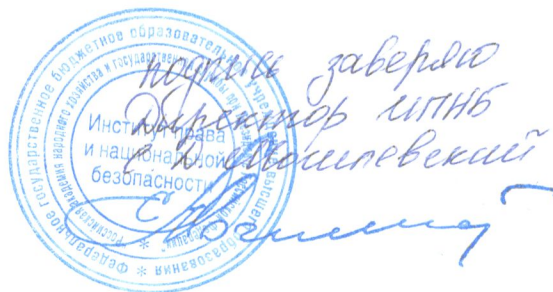 Федеральное государственное бюджетное образовательное учреждение высшего образования *
Российская академия народного хозяйства и государственной
Институт права
и национальной
безопасности
подпись заверяю
Директор ИПНБ
Могилевский